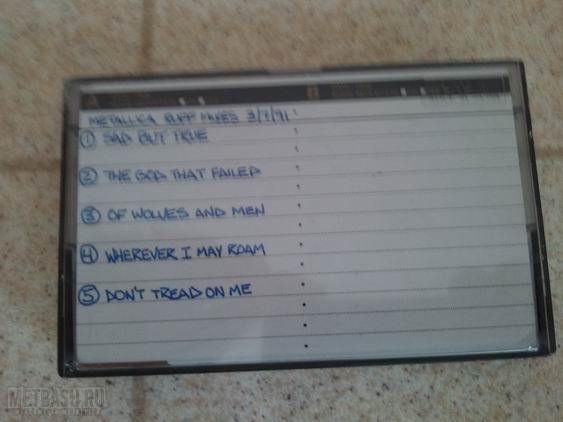 METALLICA RUFF MIXES 3/7/91
① SAD BUT TRUE
② THE GOD THAT FAILED
③ OF WOLVES AND MEN
④ WHEREVER I MAY ROAM
⑤ DON'T TREAD ON ME
METBASH.RU